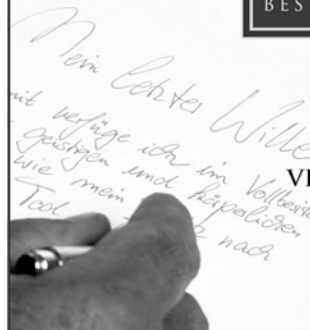 BES
Mein letzter Wille
mit verfüge ich im Vollbesitz
geistigen und körperlichen
wie mein
nach
Tod
VI